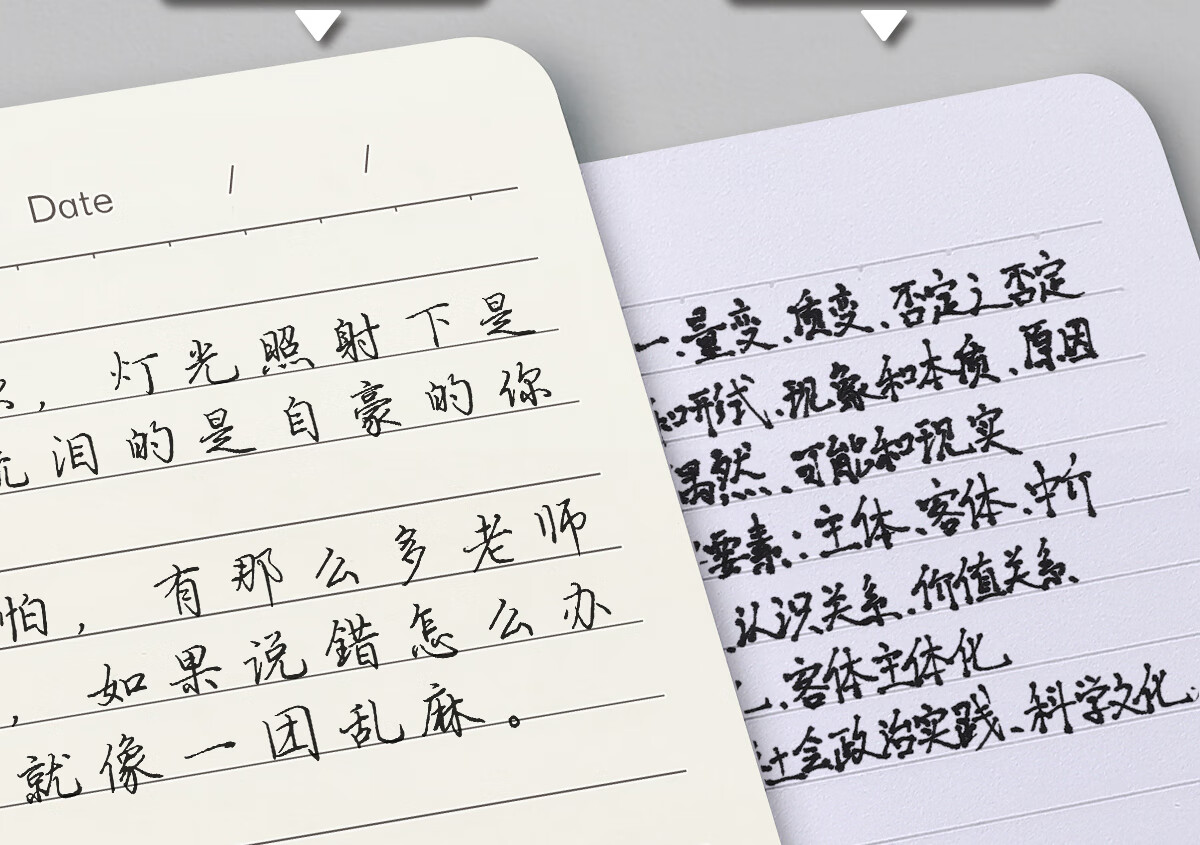 Date / /
，灯光照射下是
泪的是自豪的你
怕，有那么多老师
，如果说错怎么办
就像一团乱麻。
一、量变、质变、否定之否定
和形式、现象和本质、原因
偶然、可能和现实
要素：主体、客体、中介
、认识关系、价值关系
、客体主体化
社会政治实践、科学文化